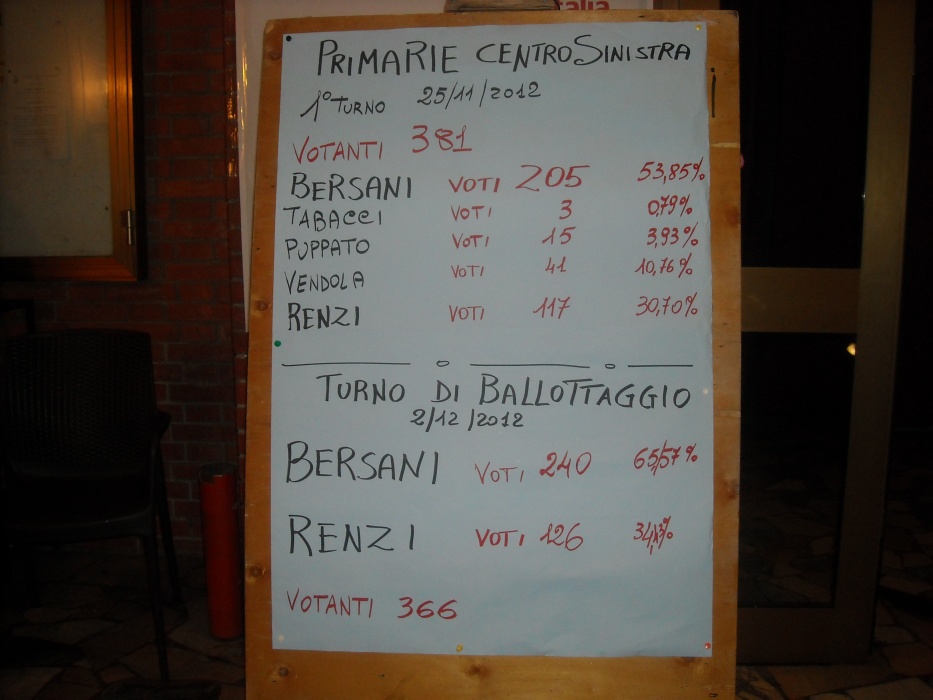 talia
PRIMARIE CENTROSINISTRA
1° TURNO 25/11/2012
VOTANTI 381
BERSANI VOTI 205 53,85%
TABACCI VOTI 3 0,79%
PUPPATO VOTI 15 3,93%
VENDOLA VOTI 41 10,76%
RENZI VOTI 117 30,70%
TURNO DI BALLOTTAGGIO
2/12/2012
BERSANI VOTI 240 65,57%
RENZI VOTI 126
VOTANTI 366